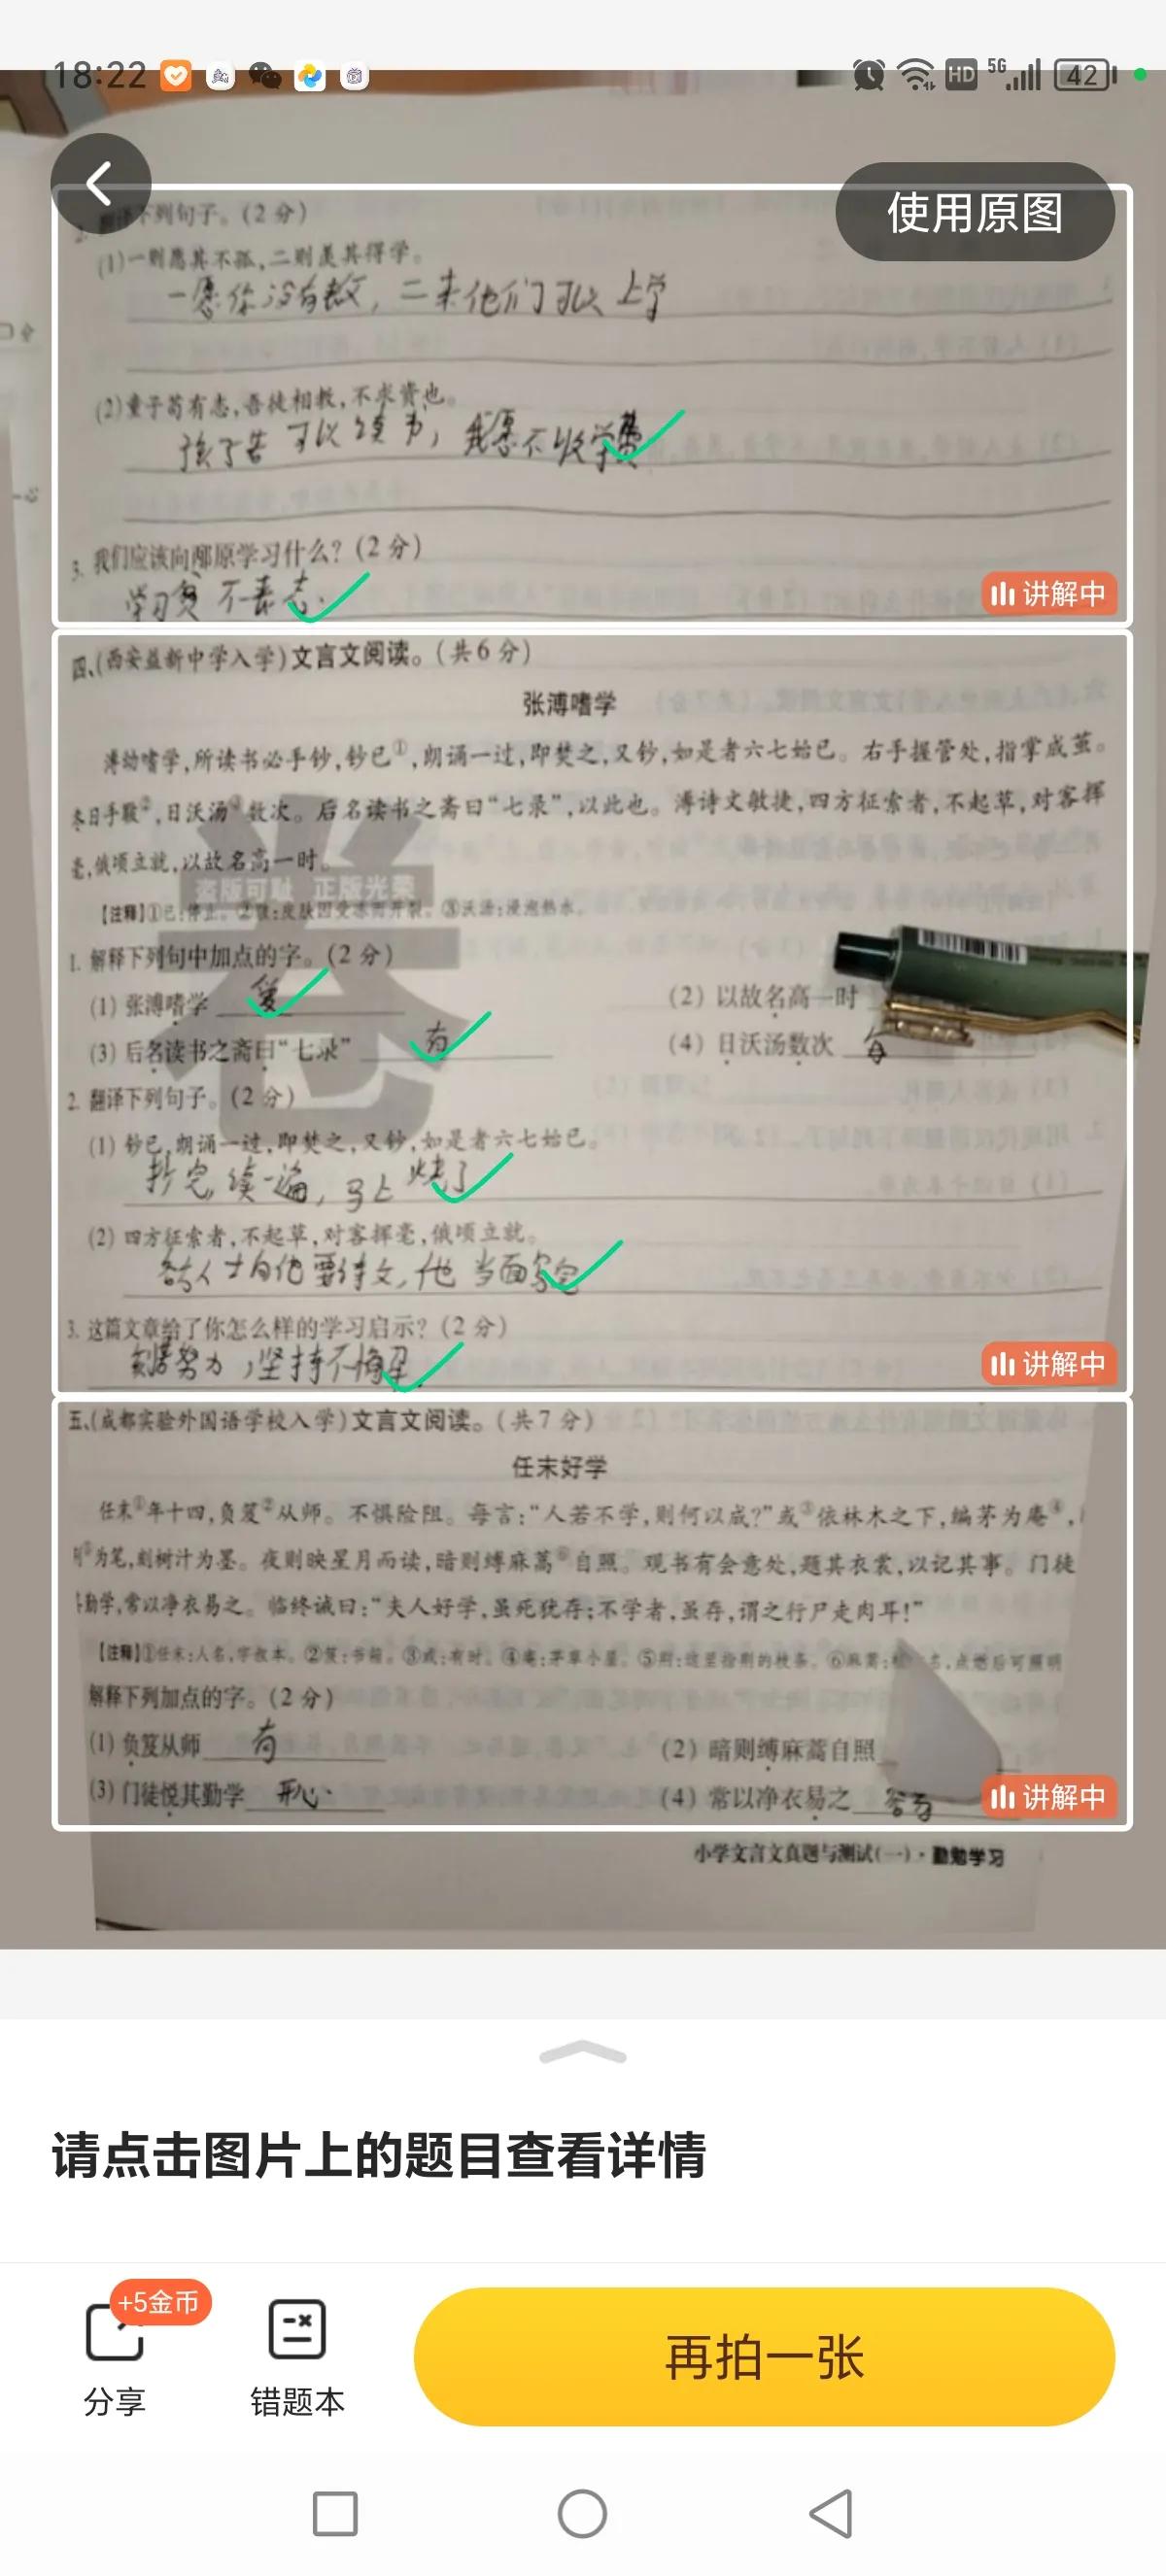 18:22
HD 5G 42
使用原图
翻译下列句子。(2分)
(1)一则愿其不孤,二则羡其得学。
一愿你没有教,二来他们可以上学
(2)童子苟有志,吾徒相教,不求资也。
孩子若可以读书,我愿不收学费
3. 我们应该向邴原学习什么?(2分)
学习贫不丧志.
讲解中
四、(西安益新中学入学)文言文阅读。(共6分)
张溥嗜学
溥幼嗜学,所读书必手钞,钞已①,朗诵一过,即焚之,又钞,如是者六七始已。右手握管处,指掌成茧。
冬日手皲②,日沃汤③数次。后名读书之斋曰“七录”,以此也。溥诗文敏捷,四方征索者,不起草,对客挥
毫,俄顷立就,以故名高一时。
盗版可耻 正版光荣
卷
【注释】①已:停止。②皲:皮肤因受冻而开裂。③沃汤:浸泡热水。
1. 解释下列句中加点的字。(2分)
(1) 张溥嗜学
(2) 以故名高一时
(3) 后名读书之斋曰“七录” 有
(4) 日沃汤数次 每
2. 翻译下列句子。(2分)
(1) 钞已,朗诵一过,即焚之,又钞,如是者六七始已。
抄完,读一遍,马上烧了
(2) 四方征索者,不起草,对客挥毫,俄顷立就。
向他要诗文,他当面写完
3. 这篇文章给了你怎么样的学习启示?(2分)
刻苦努力,坚持不懈
讲解中
五、(成都实验外国语学校入学)文言文阅读。(共7分)
任末好学
任末①年十四,负笈②从师。不惧险阻。每言:“人若不学,则何以成?”或③依林木之下,编茅为庵④,
为笔,刻树汁为墨。夜则映星月而读,暗则缚麻蒿⑥自照。观书有会意处,题其衣裳,以记其事。门徒
勤学,常以净衣易之。临终诫曰:“夫人好学,虽死犹存;不学者,虽存,谓之行尸走肉耳!”
【注释】①任末:人名,字叔本。②笈:书箱。③或:有时。④庵:茅草小屋。⑤荆:这里指荆的枝条。⑥麻蒿:名,点燃后可照明
解释下列加点的字。(2分)
(1) 负笈从师 有
(2) 暗则缚麻蒿自照
(3) 门徒悦其勤学 开心
(4) 常以净衣易之
讲解中
小学文言文真题与测试(一)·勤勉学习
请点击图片上的题目查看详情
+5金币
分享
错题本
再拍一张